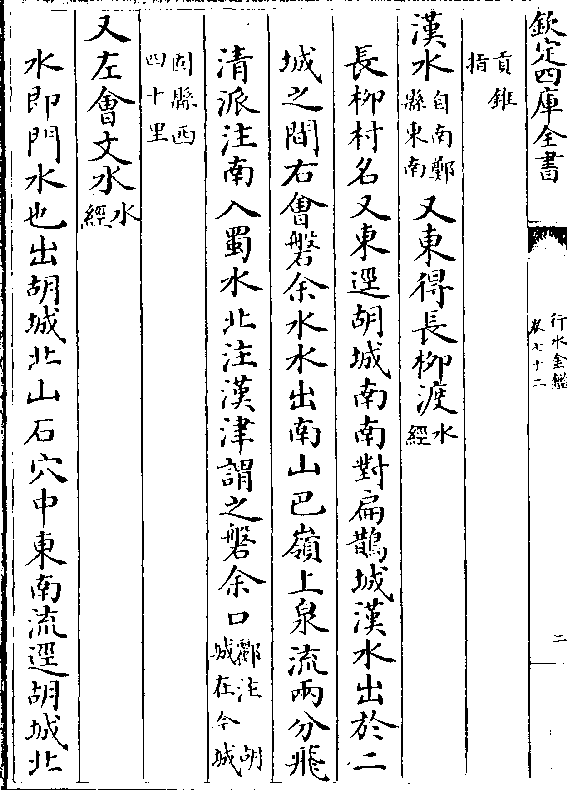 欽定四庫全書
行水金鑑
卷七十二
二
貢錐
指
漢水自南鄭縣東南又東得長柳渡水經
長柳村名又東逕胡城南南對扁鵲城漢水出於二
城之間右會磐余水水出南山巴嶺上泉流兩分飛
清派注南入蜀水北注漢津謂之磐余口酈注 胡城在今城
固縣西四十里
又左會文水水經
水即門水也出胡城北山石穴中東南流逕胡城北